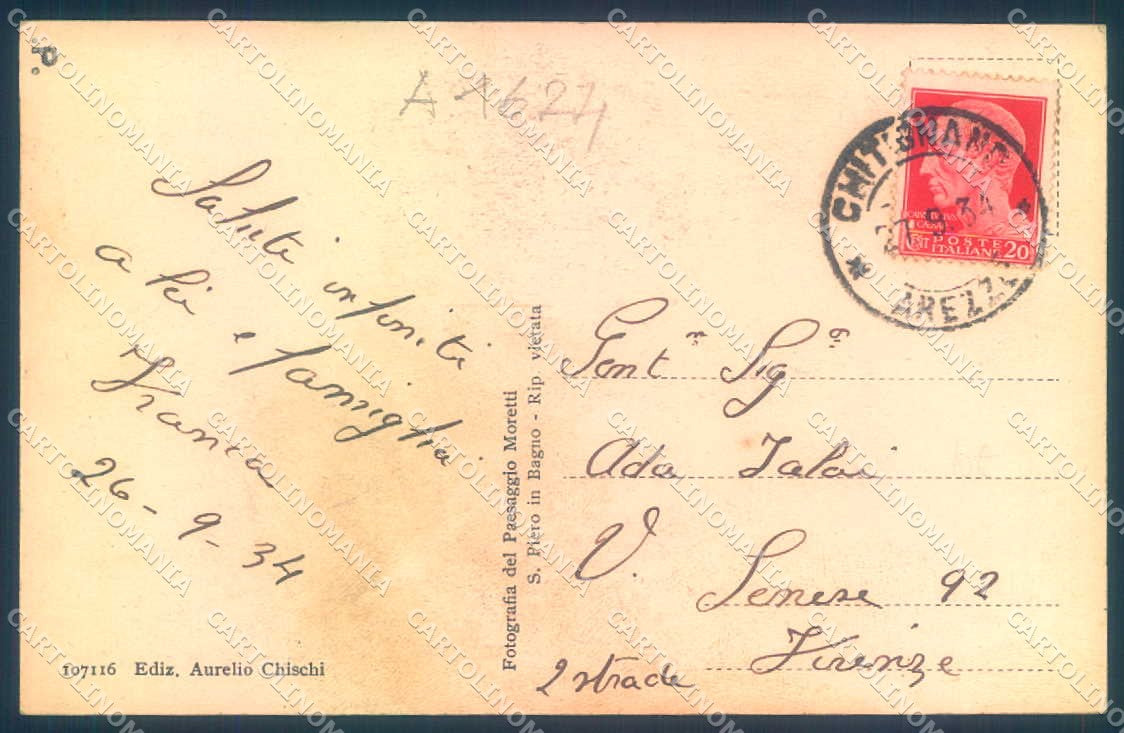 P.
A A627
Saluti infiniti
a lei e famiglia
Franca
26-9-34
107116 Ediz. Aurelio Chischi
Fotografia del Paesaggio Moretti
S. Piero in Bagno - Rip. vietata
CHITIGNANO
27.9.34
AREZZO
POSTE
ITALIANE
CENT 20
Gent.ma Sig.ra
Ada
V. Senese 92
Firenze
2 strade
CARTOLINOMANIA